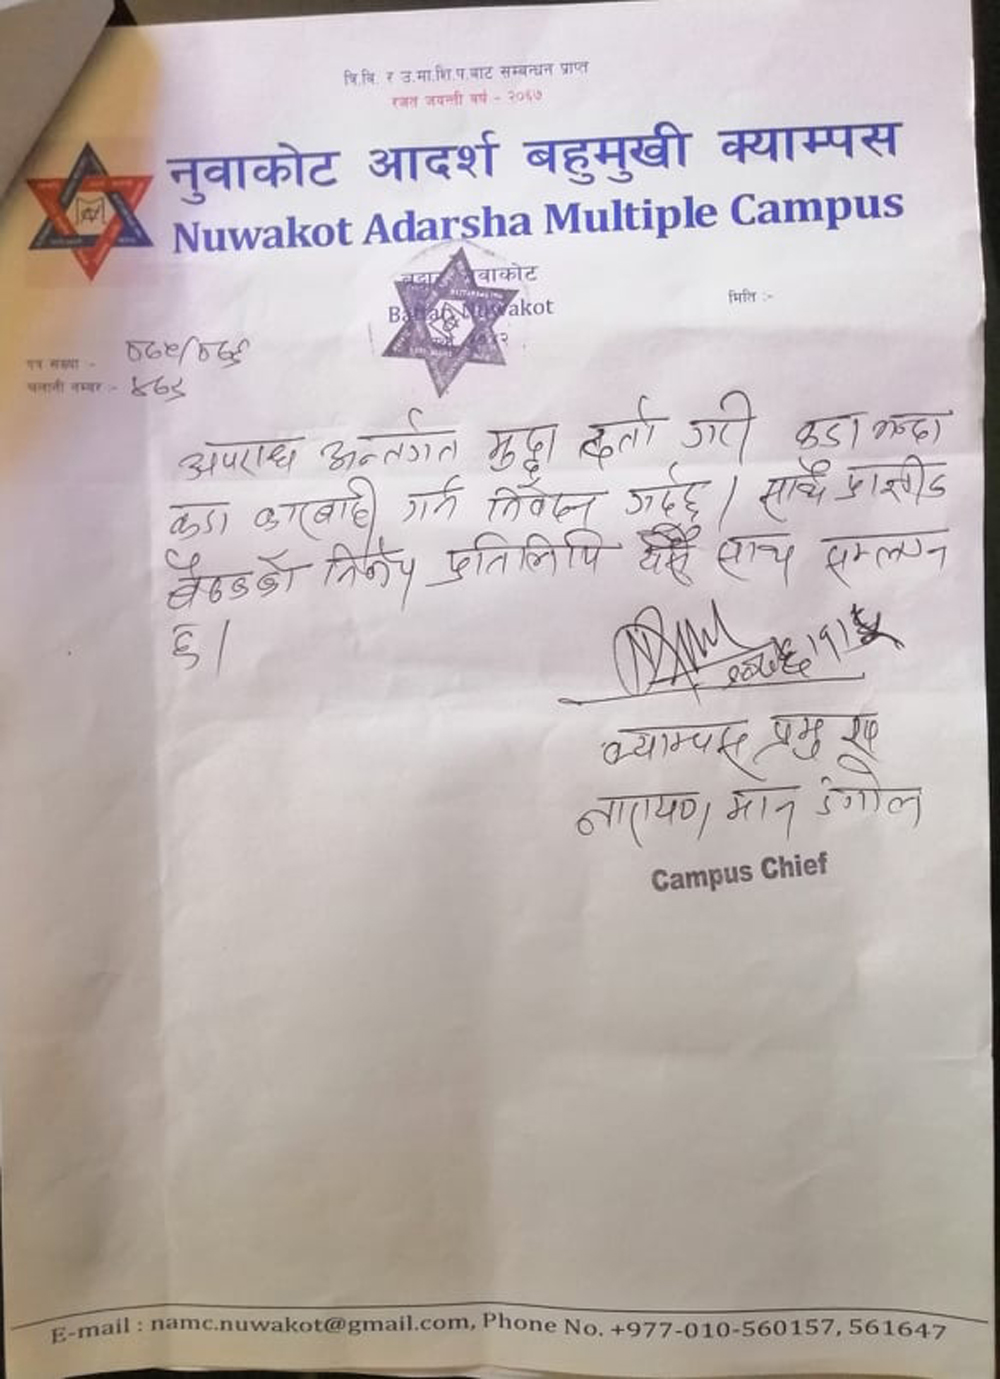 त्रि.वि. र उ.मा.शि.प.बाट सम्बन्धन प्राप्त
रजत जयन्ती वर्ष - २०६७
नुवाकोट आदर्श बहुमुखी क्याम्पस
Nuwakot Adarsha Multiple Campus
नुवाकोट
Nuwakot
मिति :-
पत्र संख्या :- ०७५/०७६
चलानी नम्बर :-
अपराध अन्तर्गत मुद्दा दर्ता गरी कडा भन्दा
कडा कारबाही गर्न निवेदन गर्दछु । साथै प्राज्ञीक
बैठकको निर्णय प्रतिलिपि यसै साथ संलग्न
छ ।
क्याम्पस प्रमुख
नारायण मान डंगोल
Campus Chief
E-mail : namc.nuwakot@gmail.com, Phone No. +977-010-560157, 561647